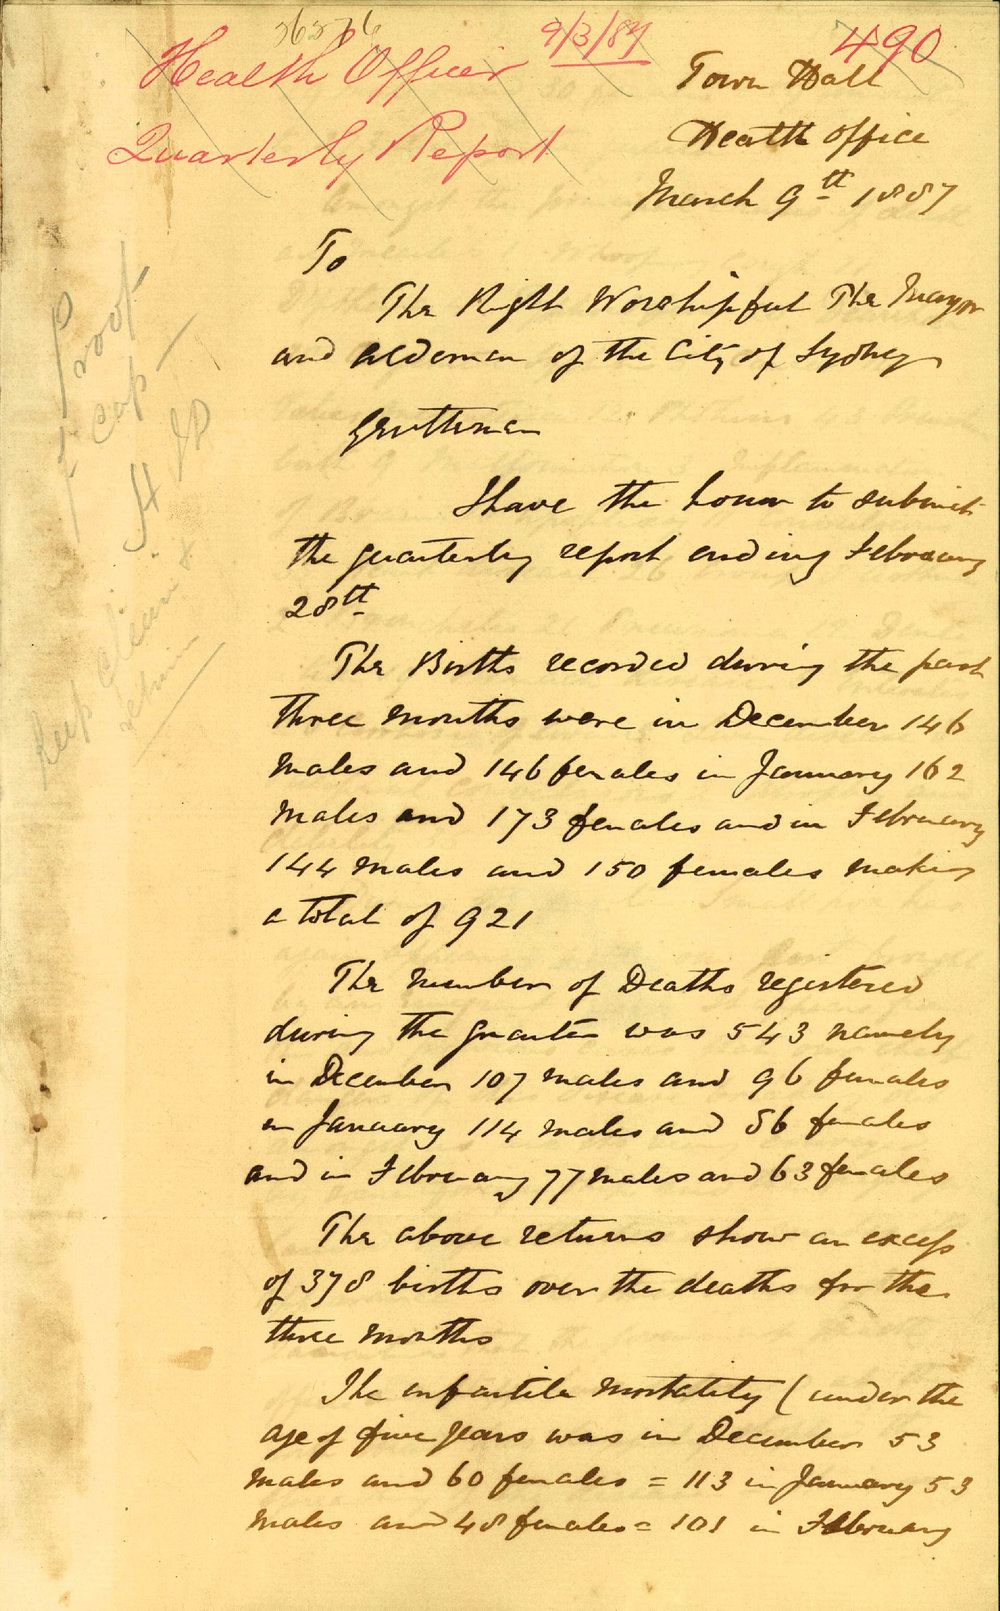 56576
Health Officer 9/3/87 490
Quarterly Report
Town Hall
Health Office
March 9th 1887
To
The Right Worshipful The Mayor
and Aldermen of the City of Sydney
Gentlemen
I have the honor to submit
the quarterly report ending February
28th
The Births recorded during the past
three months were in December 146
males and 146 females in January 162
males and 173 females and in February
144 males and 150 females making
a total of 921
The number of Deaths registered
during the quarter was 543 namely
in December 107 males and 96 females
in January 114 males and 86 females
and in February 77 males and 63 females
The above returns show an excess
of 378 births over the deaths for the
three months
The infantile mortality (under the
age of five years was in December 53
males and 60 females = 113 in January 53
males and 48 females = 101 in February
Proof
f cap
Keep clean &
return